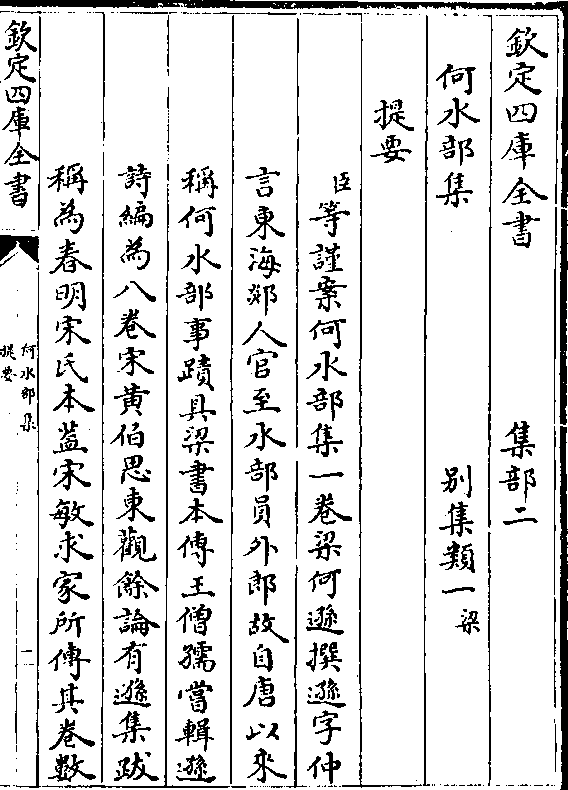 欽定四庫全書　集部二
何水部集　別集類一梁
提要
臣等謹案何水部集一卷梁何遜撰遜字仲
言東海郯人官至水部員外郎故自唐以來
稱何水部事蹟具梁書本傳王僧孺嘗輯遜
詩編為八卷宋黃伯思東觀餘論有遜集跋
稱為春明宋氏本葢宋敏求家所傳其卷數
欽定四庫全書
何水部集
提要
一